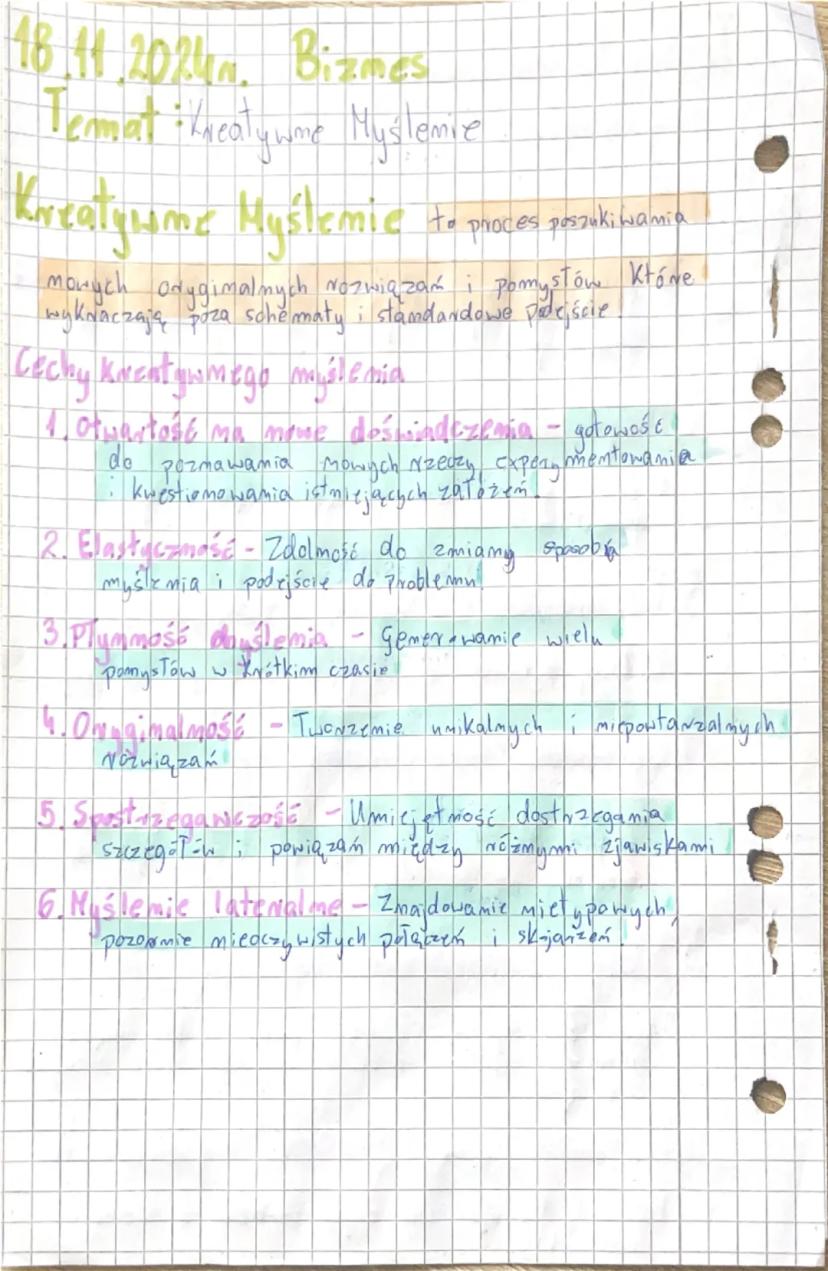 18.11.2024r. Biznes
Temat: Kreatywne Myślenie
Kreatywne Myślenie to proces poszukiwania
nowych oryginalnych rozwiązań i pomysłów które
wykraczają poza schematy i standardowe podejście.
Cechy kreatywnego myślenia
1. Otwartość na nowe doświadczenia - gotowość
do poznawania nowych rzeczy, experymentowania
i kwestionowania istniejących założeń.
2. Elastyczność - Zdolność do zmiany sposobu
myślenia i podejście do problemu
3. Płynność myślenia - generowanie wielu
pomysłów w krótkim czasie
4. Oryginalność - Tworzenie unikalnych i niepowtarzalnych
rozwiązań
5. Spostrzegawczość - Umiejętność dostrzegania
szczegółów i powiązań między różnymi zjawiskami
6. Myślenie lateralne - Znajdowanie nietypowych,
pozornie nieoczywistych połączeń i skojarzeń.